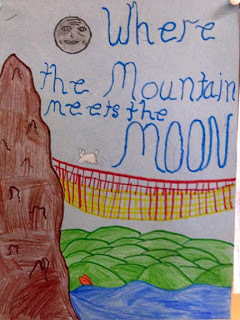 Where
the Mountain
meets the
MOON